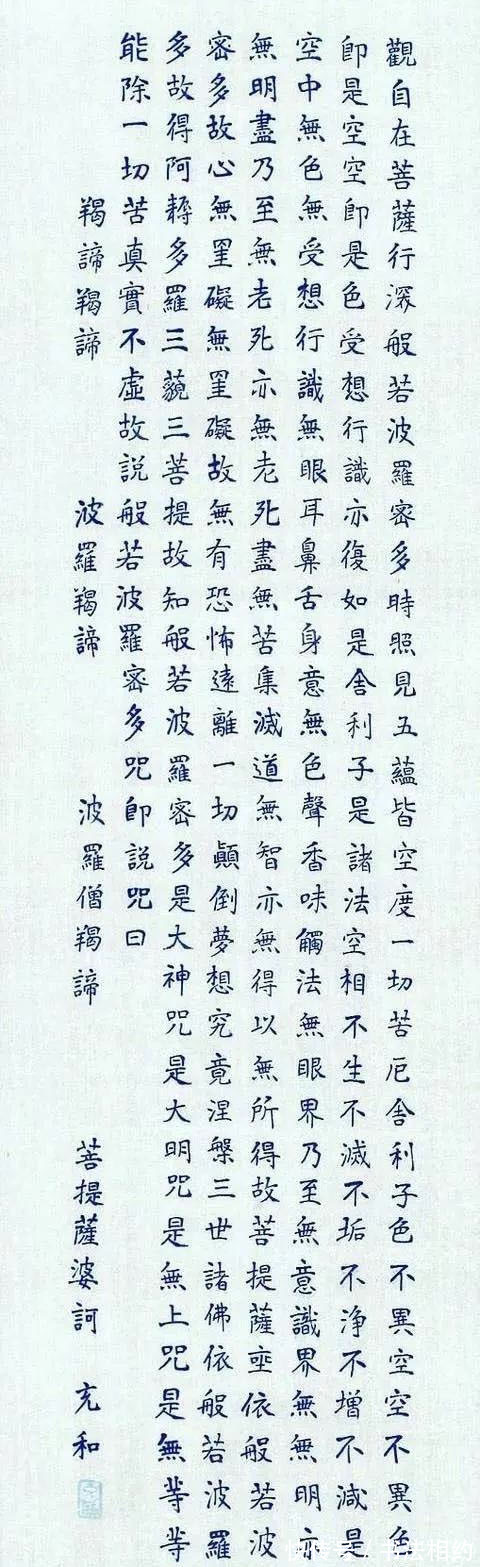 觀自在菩薩行深般若波羅密多時照見五蘊皆空度一切苦厄舍利子色不異空空不異色
即是空空即是色受想行識亦復如是舍利子是諸法空相不生不滅不垢不淨不增不減是
空中無色無受想行識無眼耳鼻舌身意無色聲香味觸法無眼界乃至無意識界無無明亦
無明盡乃至無老死亦無老死盡無苦集滅道無智亦無得以無所得故菩提薩埵依般若波
密多故心無罣礙無罣礙故無有恐怖遠離一切顛倒夢想究竟涅槃三世諸佛依般若波羅
多故得阿耨多羅三藐三菩提故知般若波羅密多是大神咒是大明咒是無上咒是無等等
能除一切苦真實不虛故說般若波羅密多咒即說咒曰
羯諦羯諦 波羅羯諦 波羅僧羯諦 菩提薩婆訶 充和
快传号 / 书法相约